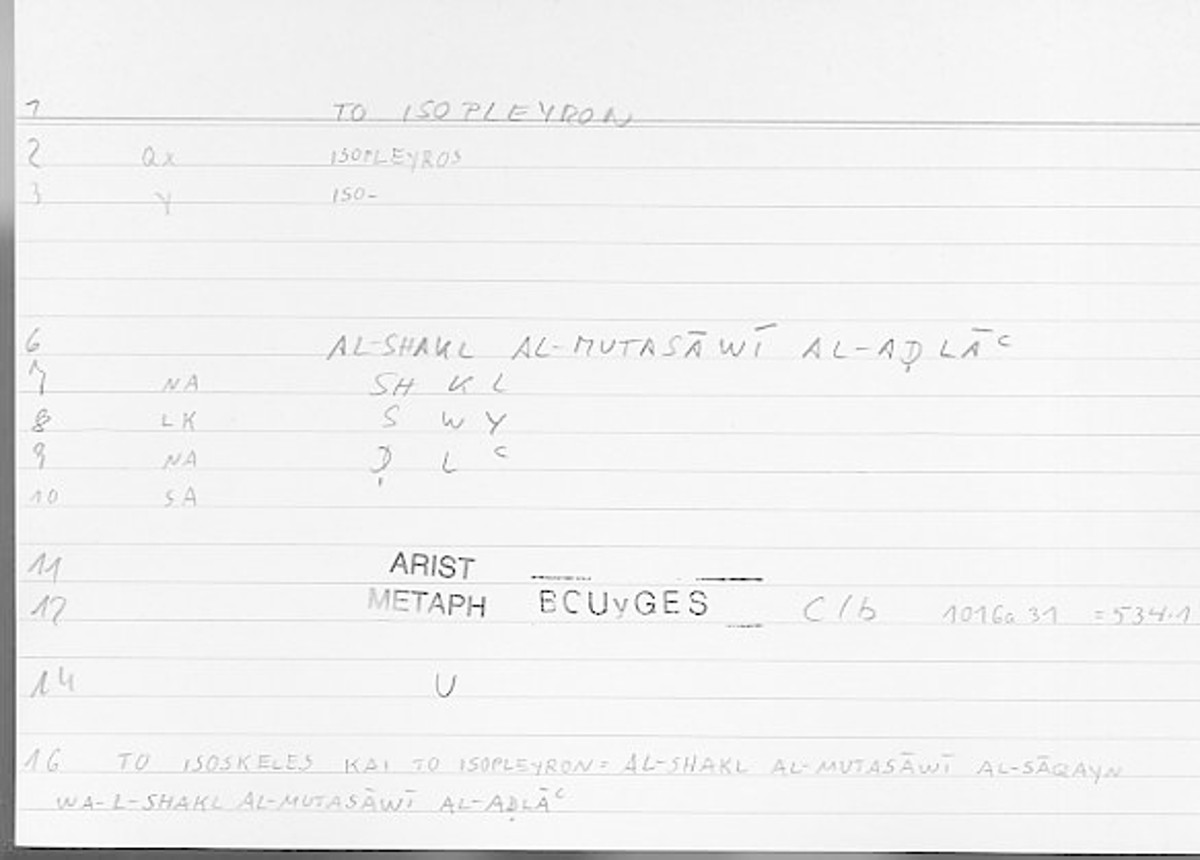 1 TO ISOPLEYRON
2 Qx ISOPLEYROS
3 Y ISO-
6 AL-SHAKL AL-MUTASĀWĪ AL-AḌLĀᶜ
7 NA SH K L
8 LK S W Y
9 NA Ḍ L ᶜ
10 SA
11 ARIST
12 METAPH BCUyGES C16 1016a 31 = 534.1
14 U
16 TO ISOSKELES KAI TO ISOPLEYRON = AL-SHAKL AL-MUTASĀWĪ AL-SĀQAYN
WA-L-SHAKL AL-MUTASĀWĪ AL-AḌLĀᶜ